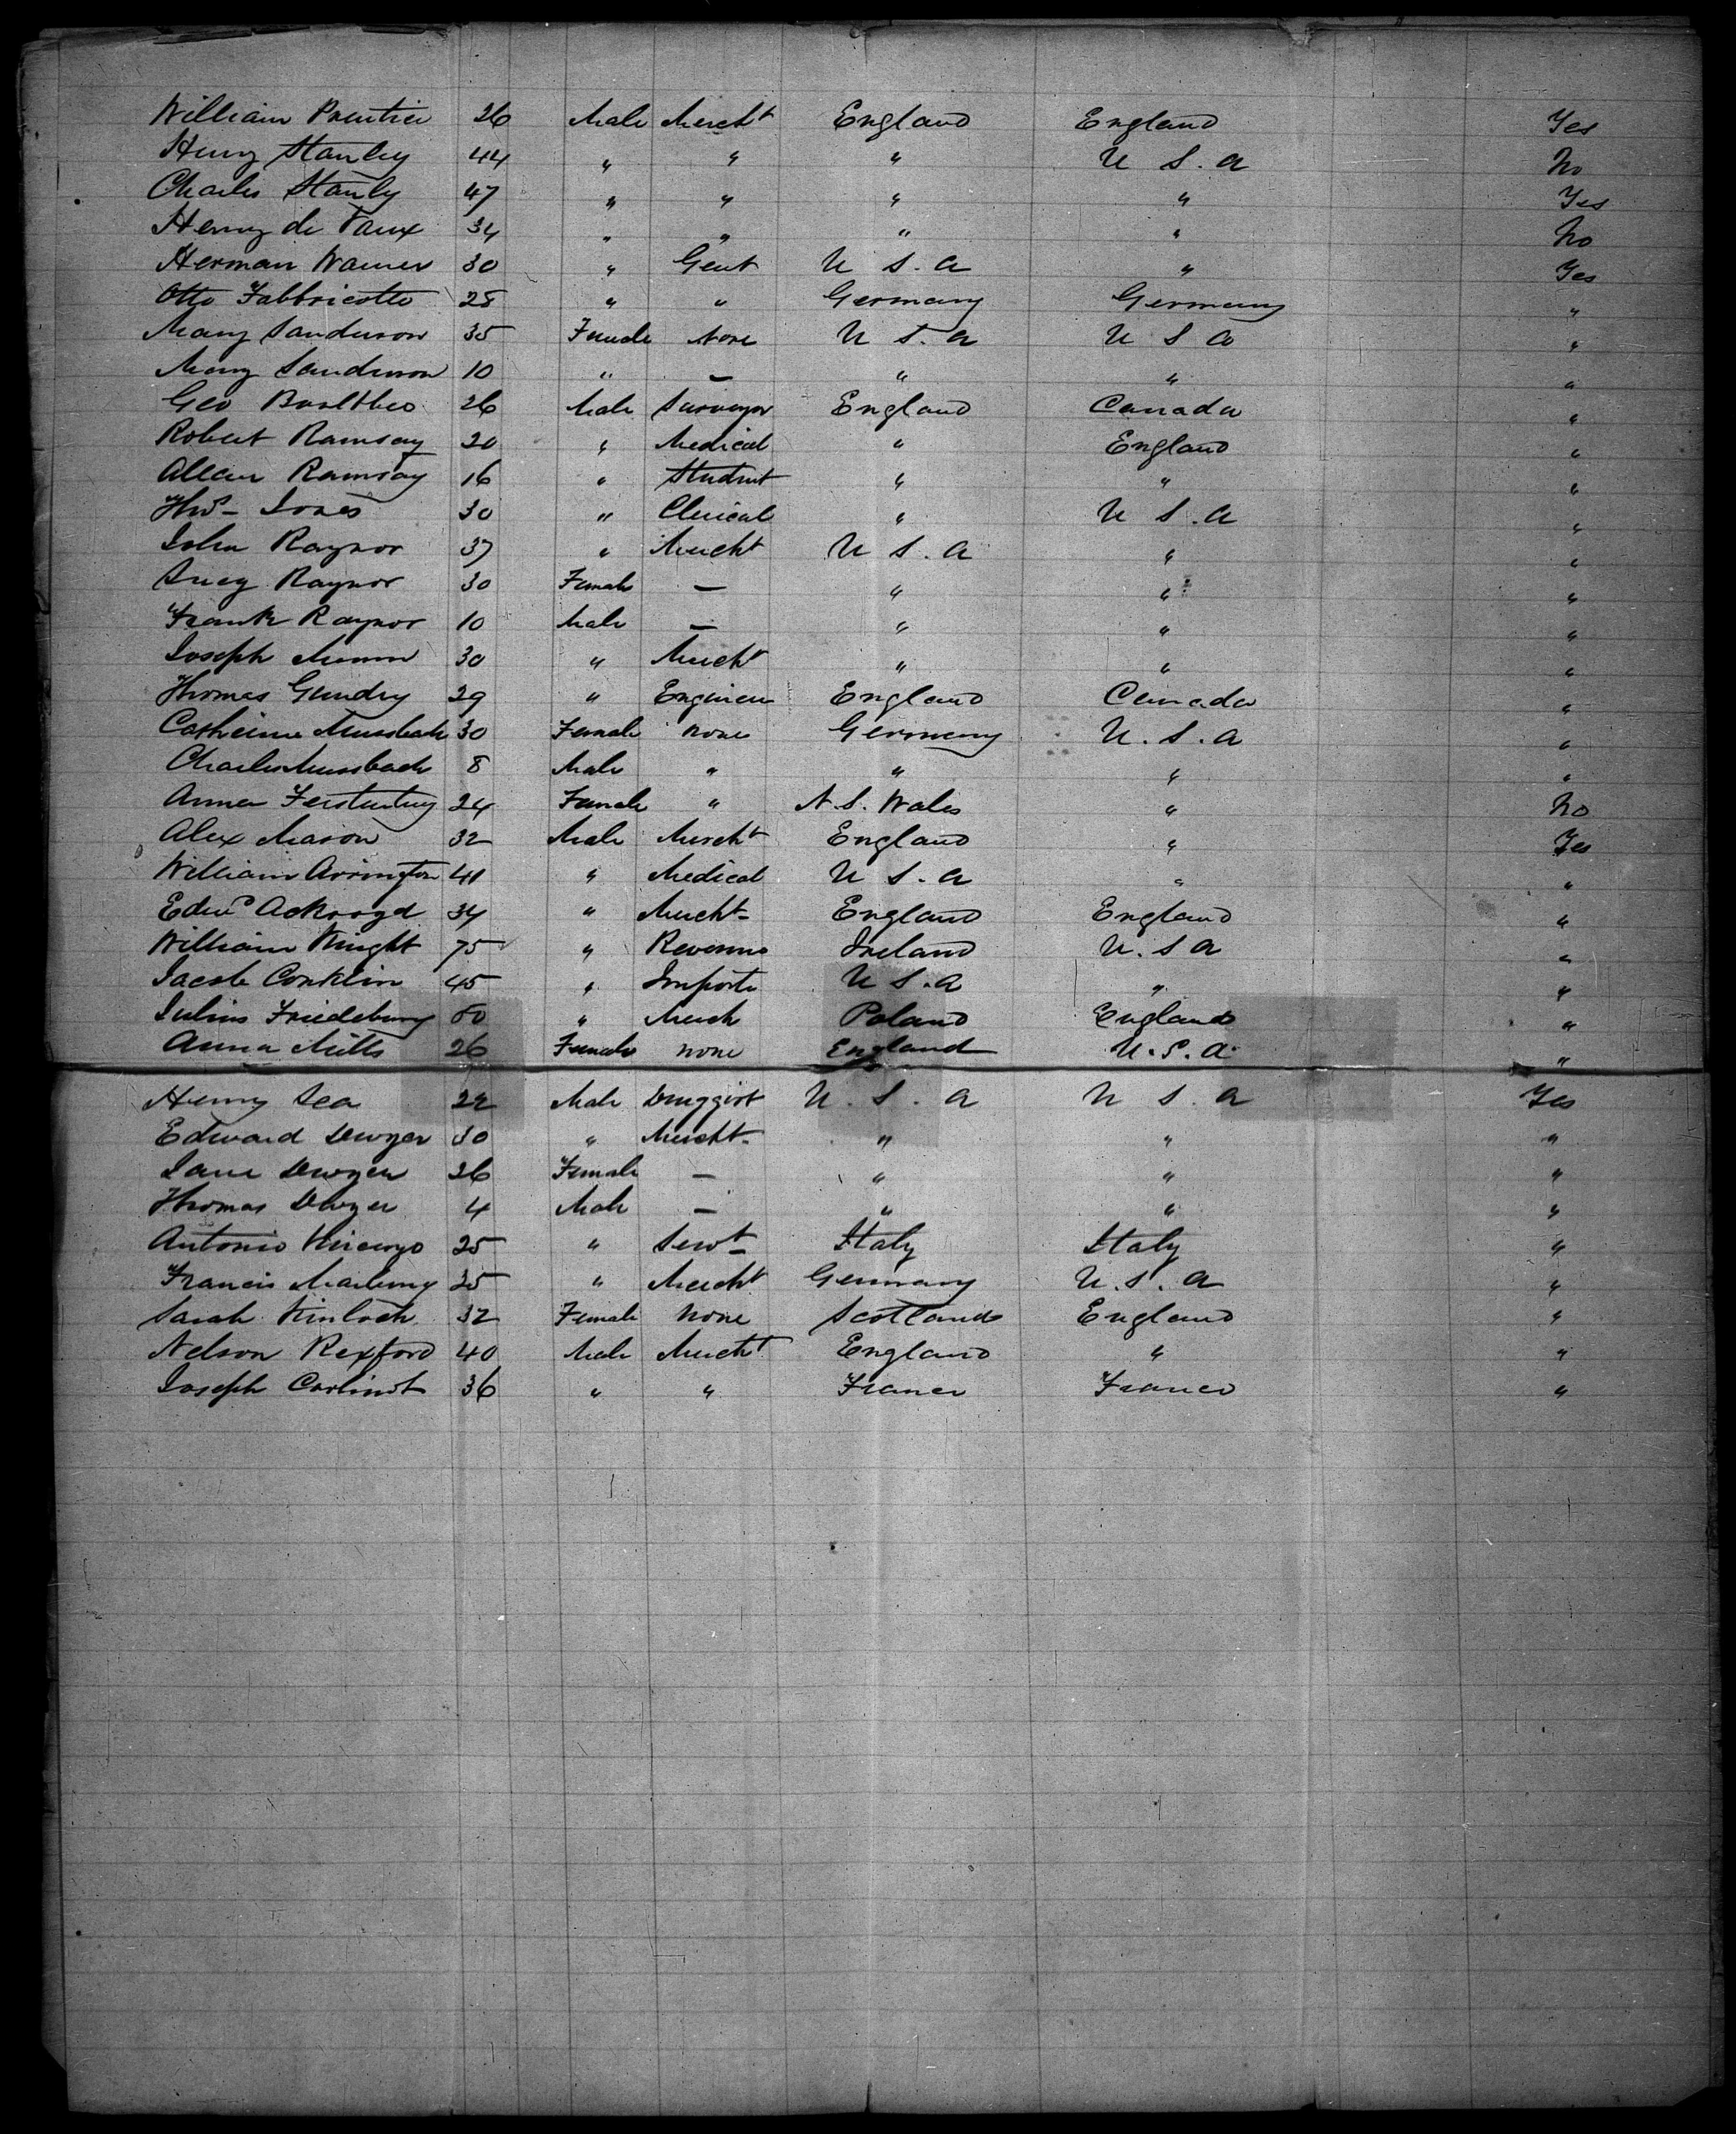 William Prentice 26 Male Mercht England England Yes
Henry Stanley 44 " " " U S. A No
Charles Stanly 47 " " " " Yes
Henry de Vaux 34 " " " " No
Herman Warner 30 " Gent U S. A " Yes
Otto Fabbricotto 28 " " Germany Germany "
Mary Sanderson 35 Female None U S. A U S A "
Mary Sanderson 10 " — " " "
Geo 26 Male Surveyor England Canada "
Robert Ramsay 20 " Medical " England "
Allan Ramsay 16 " Student " " "
Thos Jones 30 " Clerical " U S. A "
John Raynor 37 " Mercht U S. A " "
Lucy Raynor 30 Female — " " "
Frank Raynor 10 Male — " " "
Joseph 30 " Mercht " " "
Thomas Gundry 29 " Engineer England Canada "
Catherine Mussbach 30 Female None Germany U. S. A "
Charles Mussbach 8 Male " " " "
Anna 24 Female " N. S. Wales " No
Alex Mason 32 Male Mercht England " Yes
William Arrington 41 " Medical U S. A " "
Edwd Ackroyd 34 " Mercht England England "
William Knight 75 " Ireland U. S A "
Jacob Conklin 45 " Importer U S. A " "
Julius Friedeburg 50 " Merch Poland England "
Anna Mills 26 Female none England U. S. A. "
Henry Lea 22 Male Druggist U. S. A U S. A Yes
Edward Dwyer 30 " Mercht " " "
Jane Dwyer 26 Female — " " "
Thomas Dwyer 4 Male — " " "
Antonio 25 " Servt Italy Italy "
Francis 25 " Mercht Germany U. S. A "
Sarah Kinloch 32 Female None Scotland England "
Nelson Rexford 40 Male Mercht England " "
Joseph Carlinot 36 " " France France "